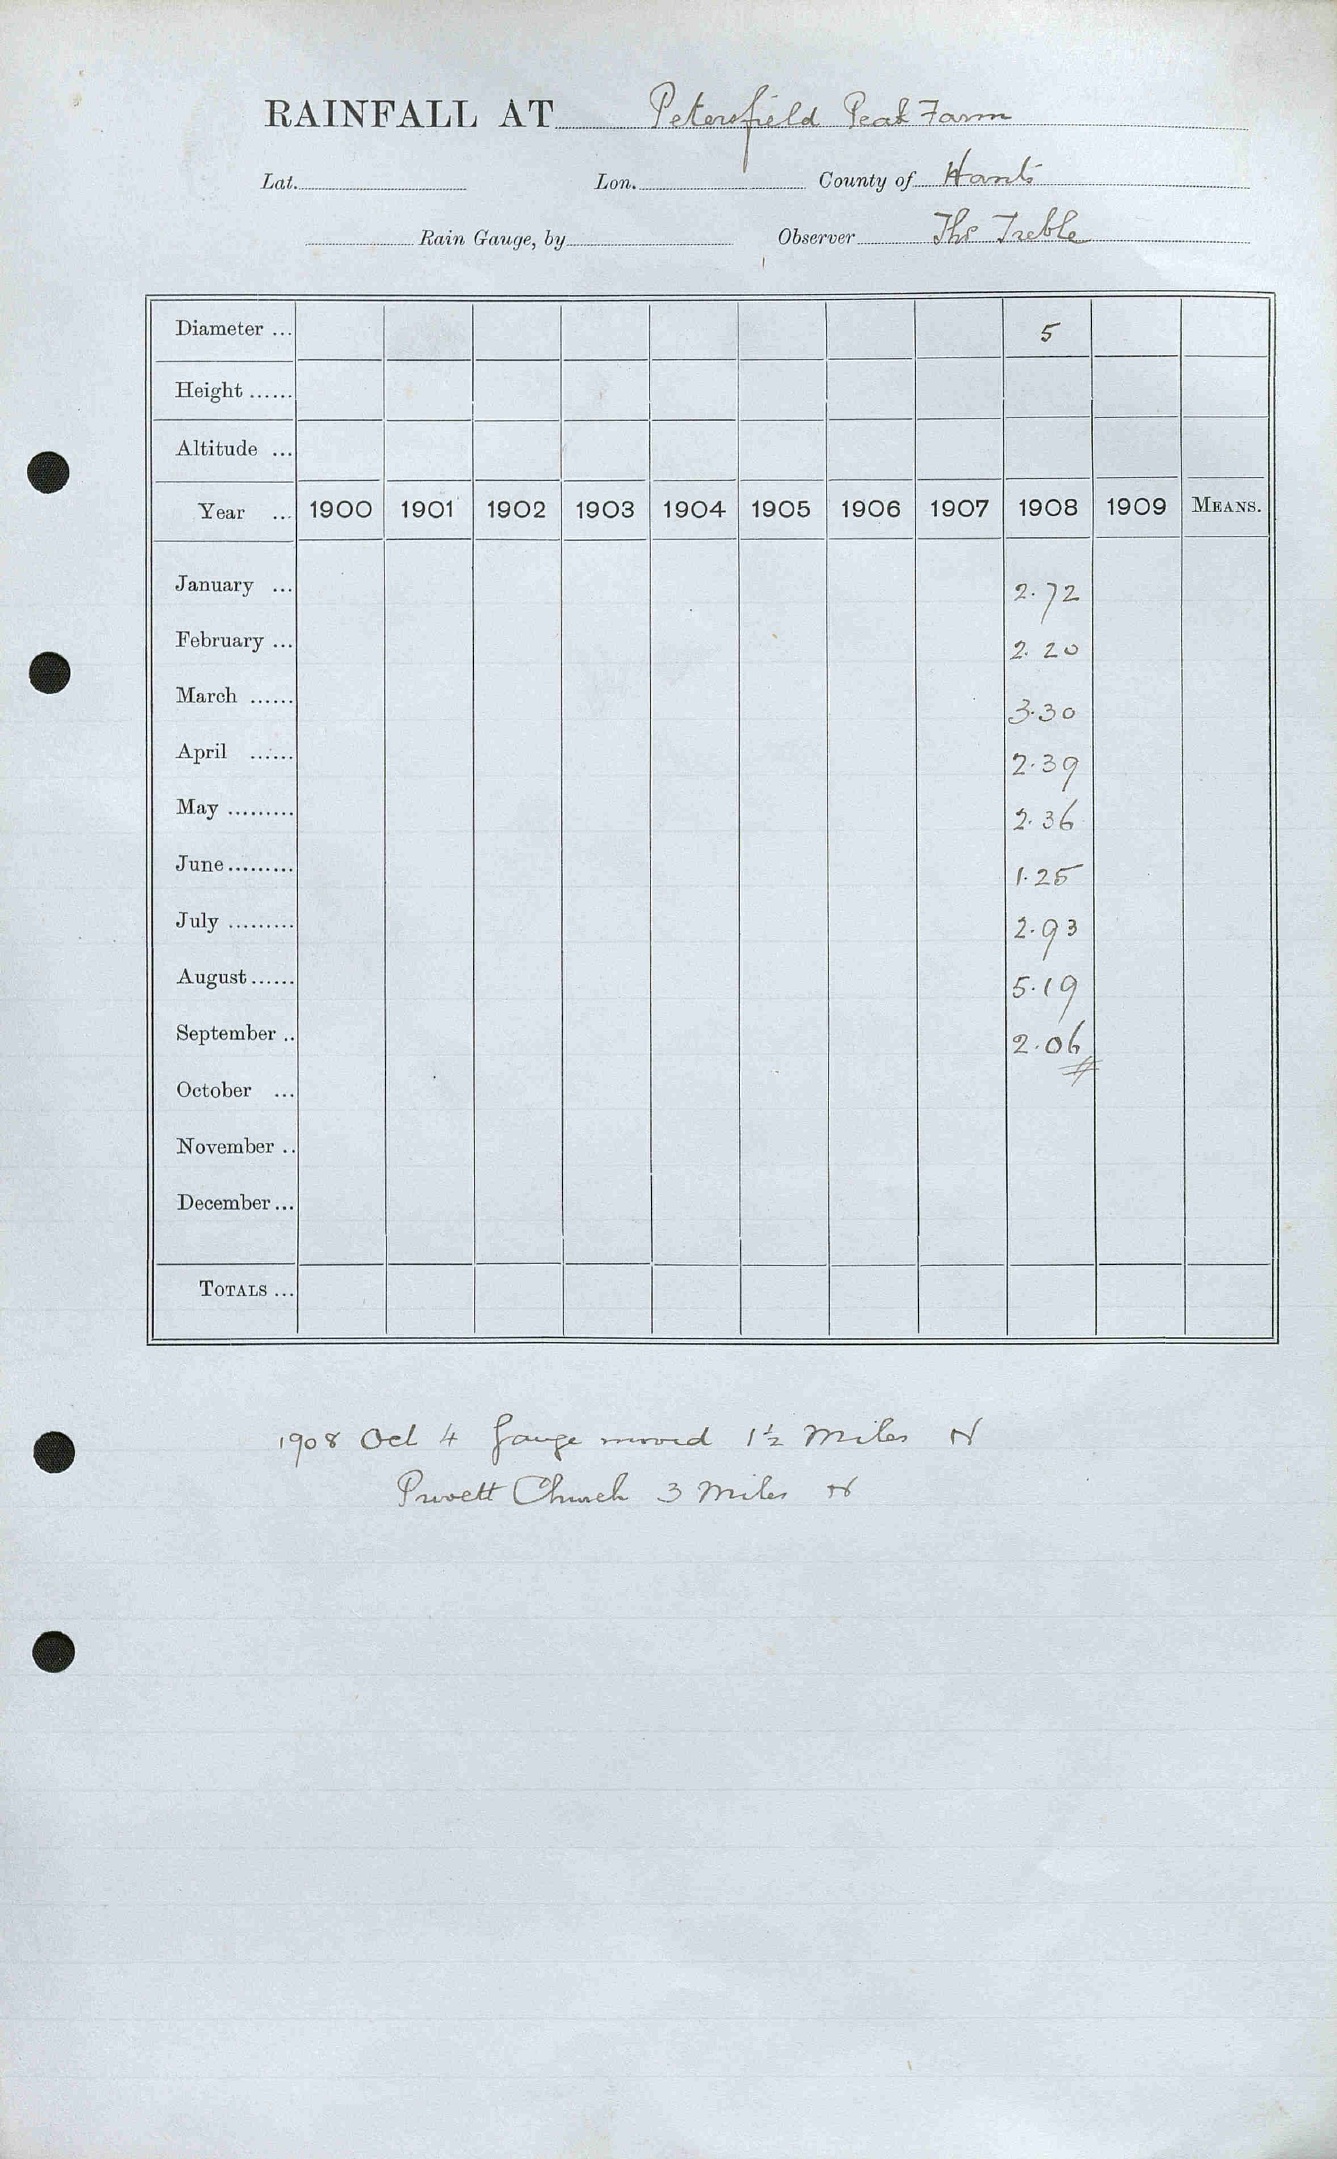 RAINFALL AT Petersfield Peak Farm
Lat. Lon. County of Hants
Rain Gauge, by Observer Thos Treble
Diameter ... 5
Height ......
Altitude ...
Year ... 1900 1901 1902 1903 1904 1905 1906 1907 1908 1909 MEANS.
January ... 2.72
February ... 2.20
March ...... 3.30
April ...... 2.39
May ......... 2.36
June ......... 1.25
July ......... 2.93
August ...... 5.19
September .. 2.06
October ...
November ..
December ...
TOTALS ...
1908 Oct 4 Gauge moved 1½ Miles N
Privett Church 3 Miles N